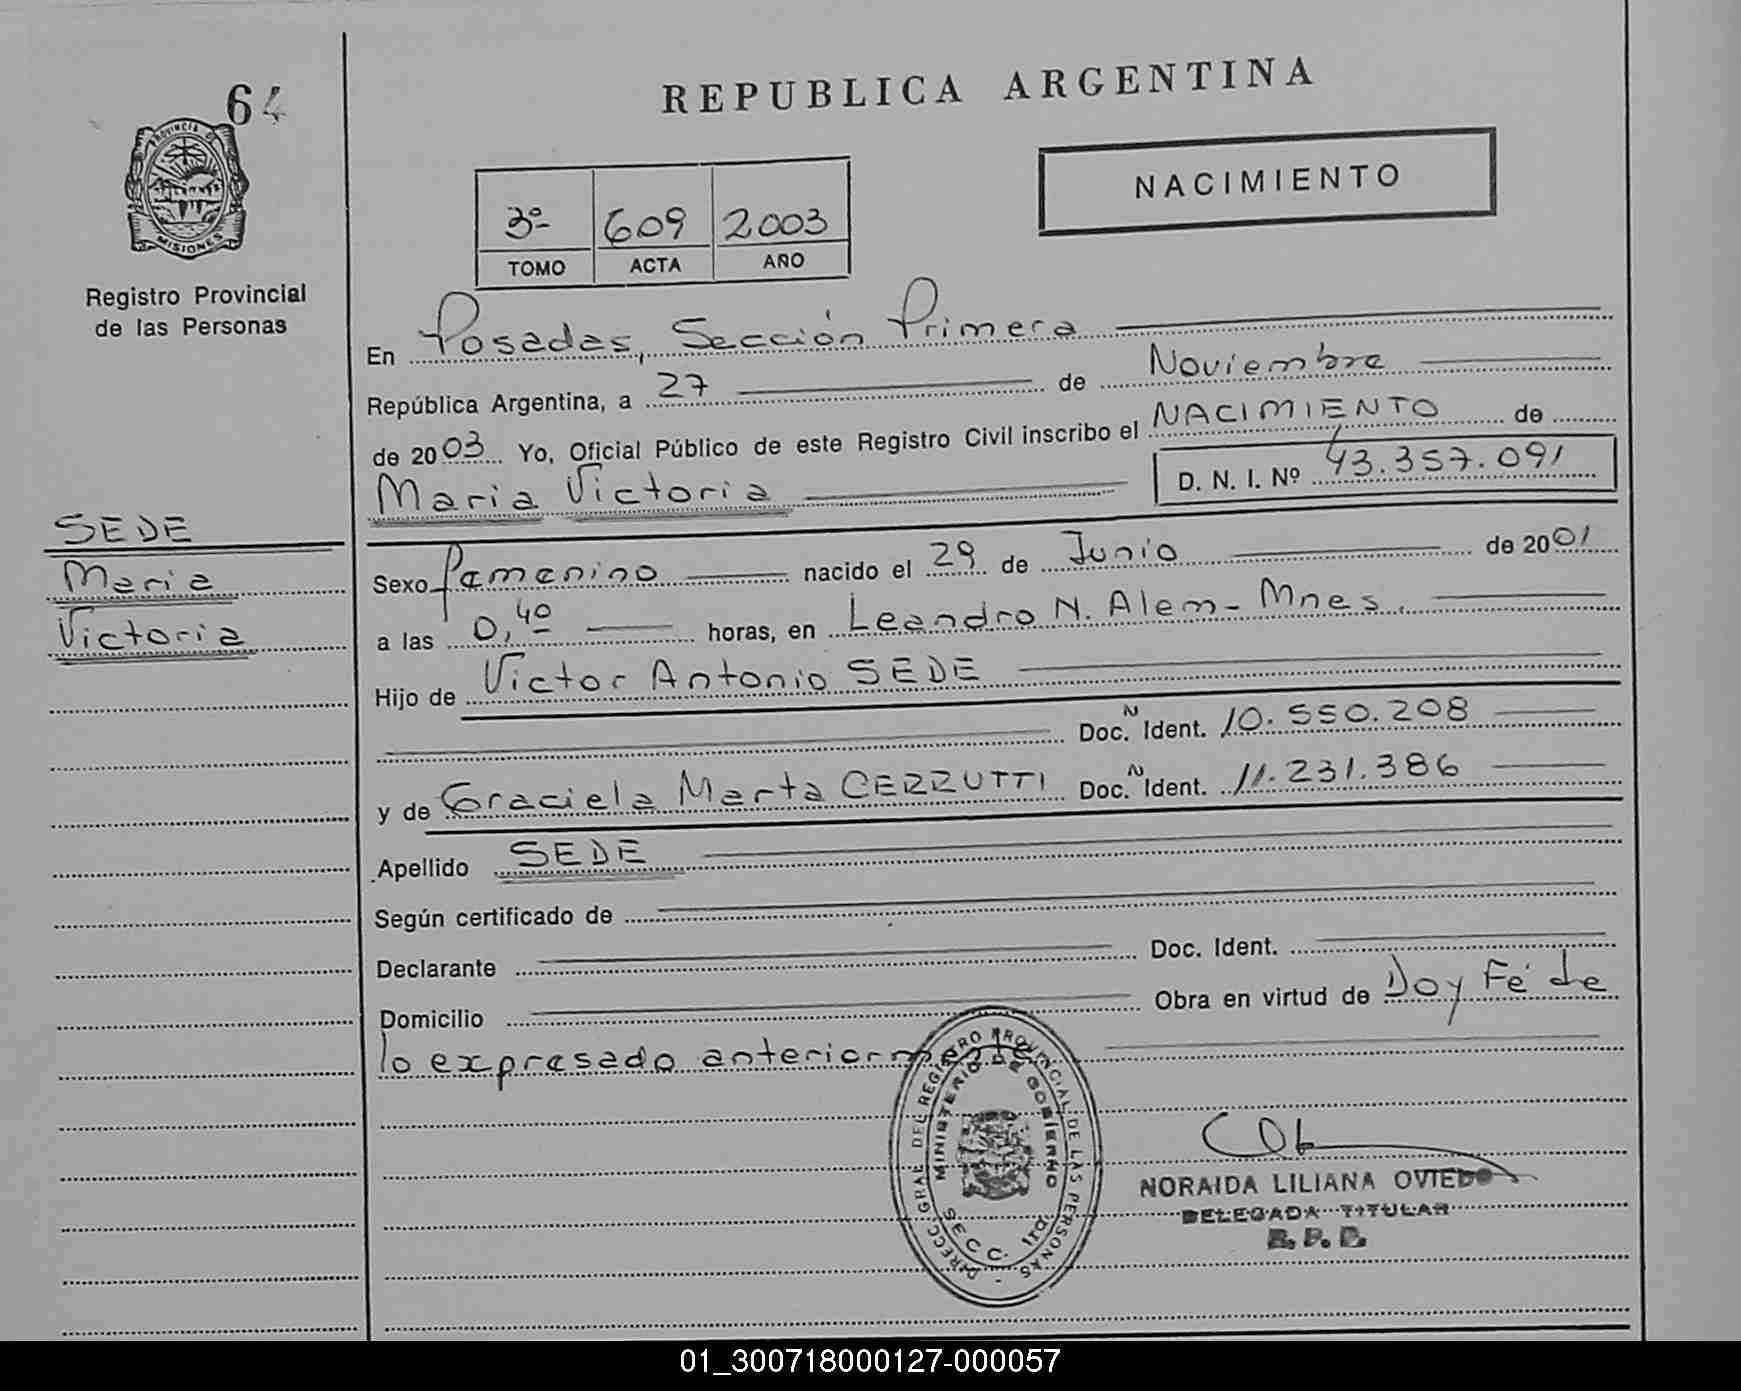 64
PROVINCIA DE
MISIONES
Registro Provincial
de las Personas
REPUBLICA ARGENTINA
NACIMIENTO
3º 609 2003
TOMO ACTA AÑO
En Posadas, Sección Primera
República Argentina, a 27 de Noviembre
de 2003 Yo, Oficial Público de este Registro Civil inscribo el NACIMIENTO de
Maria Victoria D. N. I. Nº 43.357.091
SEDE
Maria
Victoria
Sexo femenino nacido el 29 de Junio de 2001
a las 0,40 horas, en Leandro N. Alem - Mnes.
Hijo de Victor Antonio SEDE
Doc. N Ident. 10.550.208
y de Graciela Marta CERRUTTI Doc. N Ident. 11.231.386
Apellido SEDE
Según certificado de
Declarante Doc. Ident.
Domicilio Obra en virtud de Doy Fé de
lo expresado anteriormente
DIRECC. GRAL. DEL REGISTRO PROVINCIAL DE LAS PERSONAS
MINISTERIO DE GOBIERNO
SECC.
NORAIDA LILIANA OVIEDO
DELEGADA TITULAR
R. P. P.
01_300718000127-000057